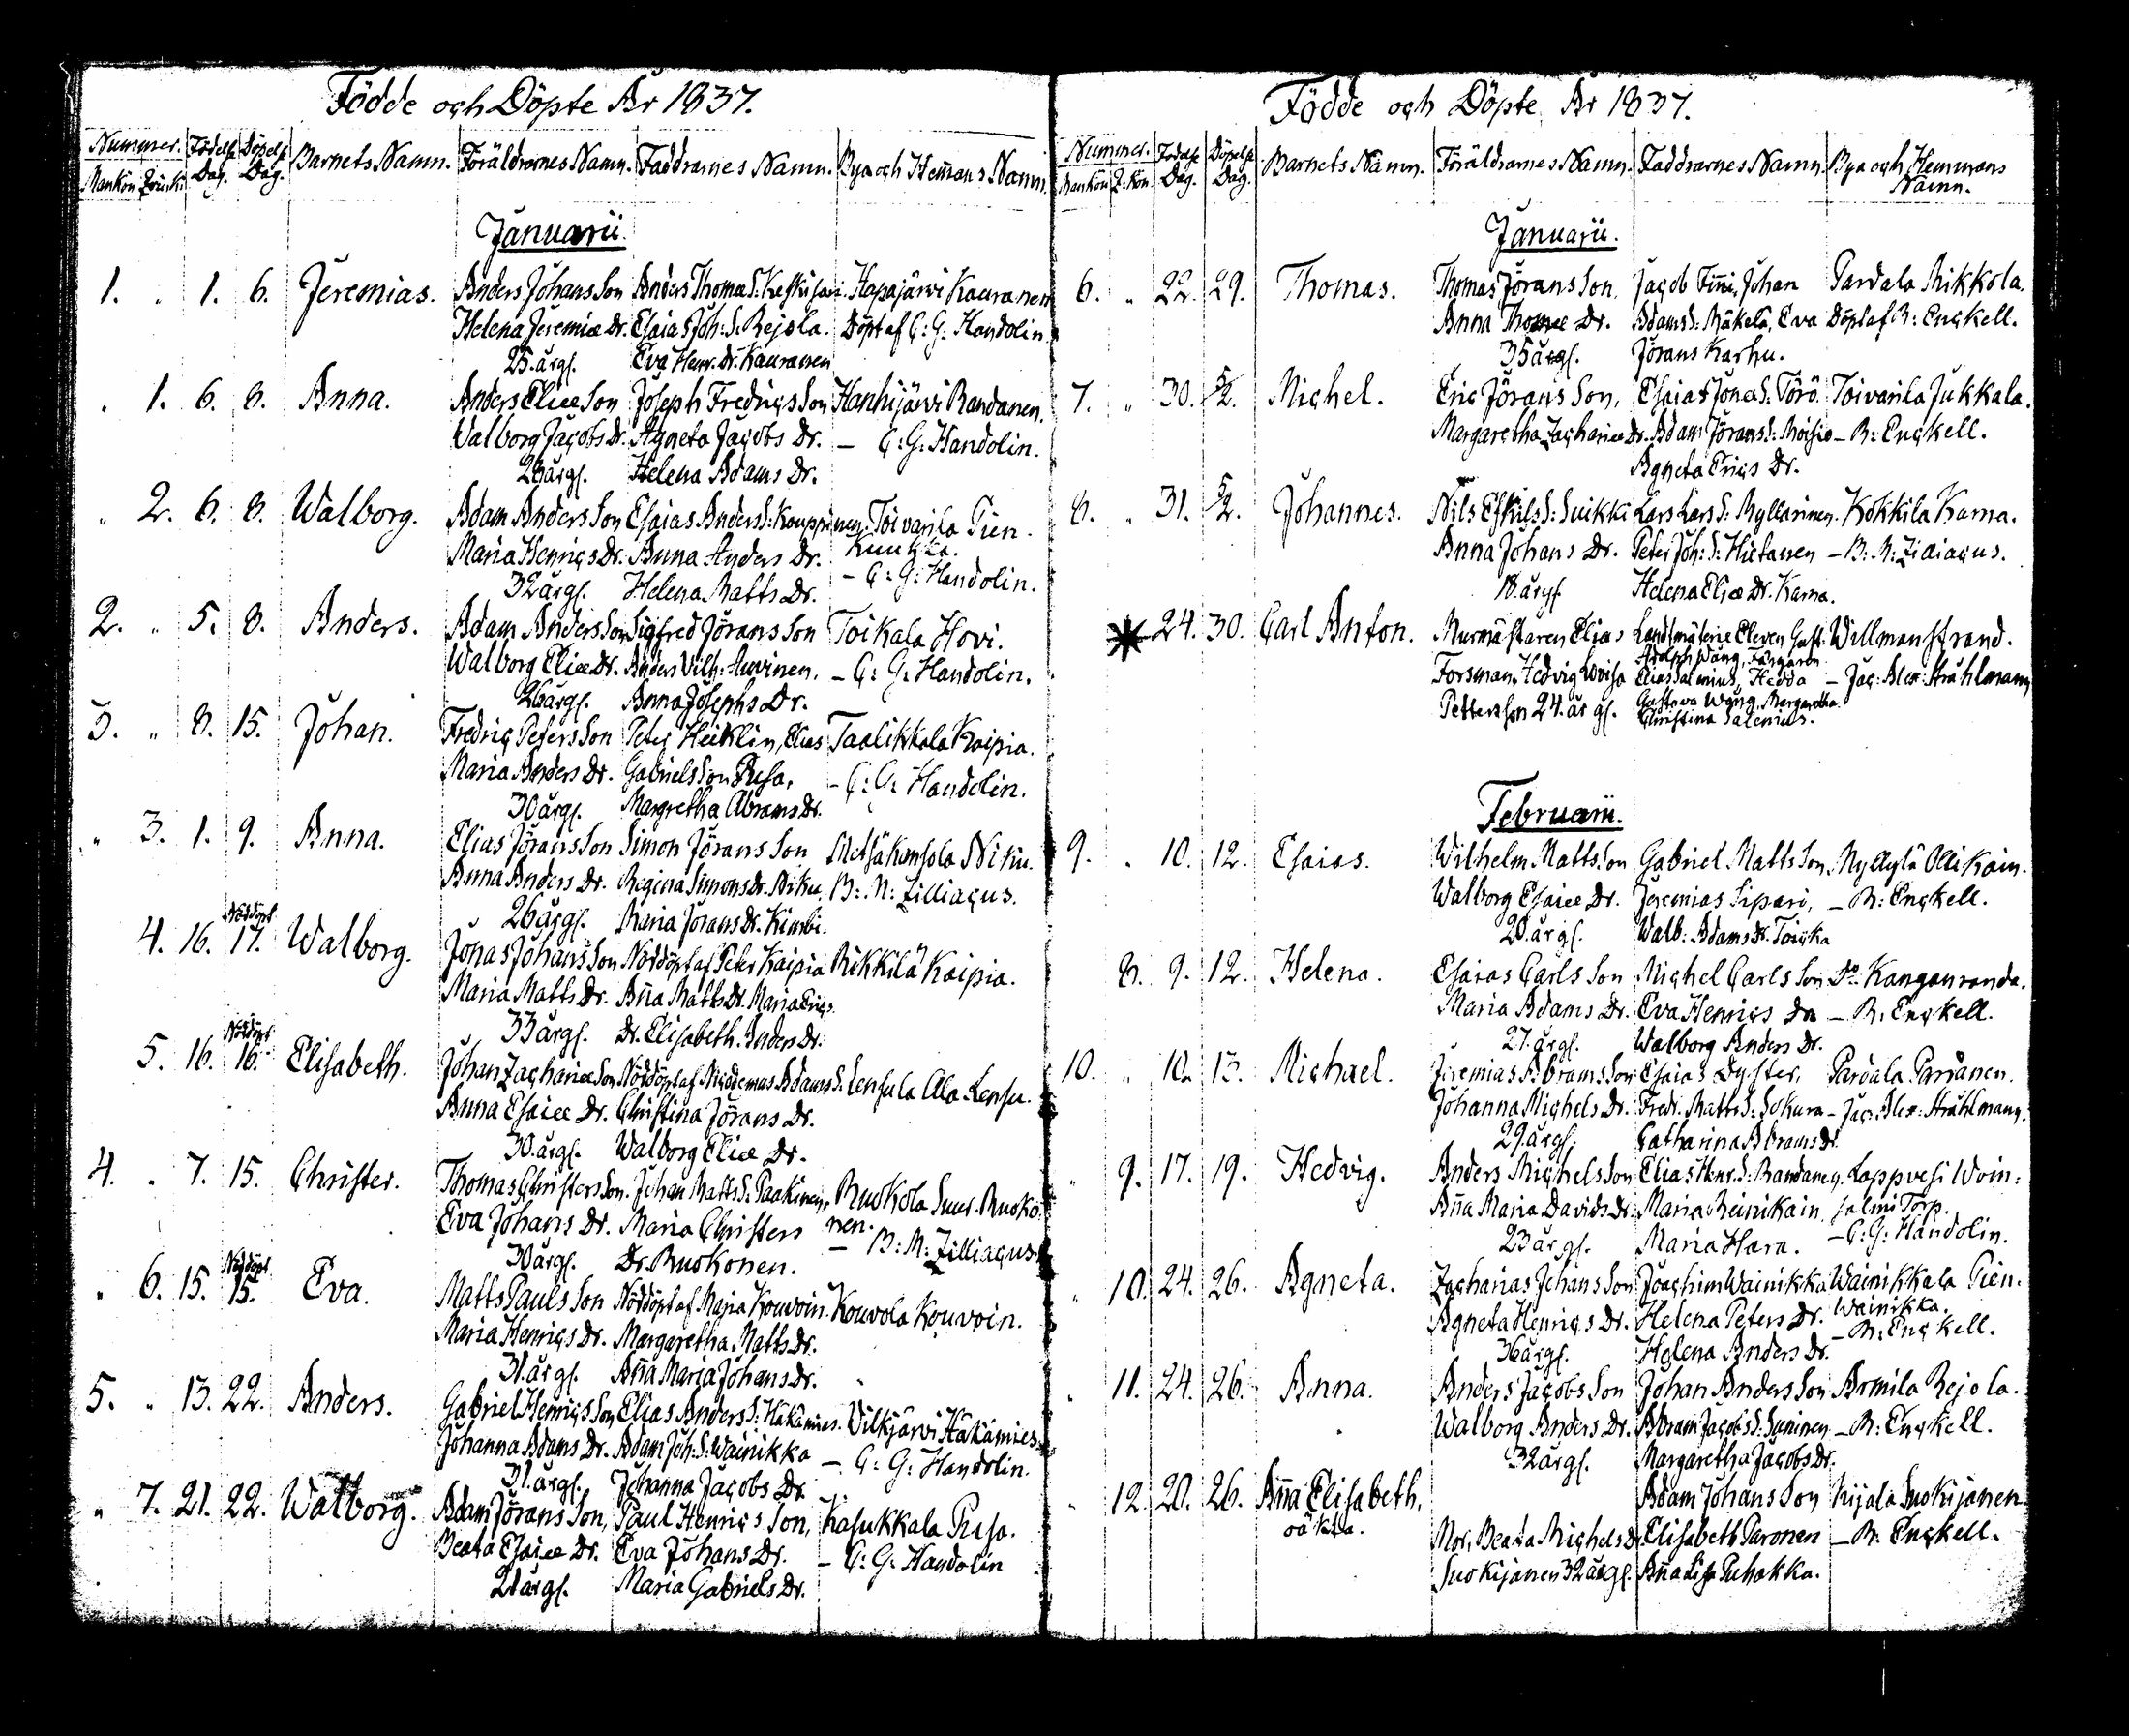 Födde och Döpte År 1837.
Nummer. Födelse Dag. Döpelse Dag. Barnets Namn. Föräldrarnes Namn. Faddrarnes Namn. Bya och Hemans Namn.
Mankön Qvink:
Januarii.
1. „ 1. 6. Jeremias. Anders Johans Son Anders Thomæ S: Keskisari. Hapajärvi Kauranen
Helena Jeremiæ Dr. Esaias Joh: S: Rejola. Döpt af C: G: Handolin.
25. årg. Eva Henr. Dr. Kauranen
„ 1. 6. 8. Anna. Anders Eliæ Son Joseph Fredrics Son Hanhijärvi Randanen.
Walborg Jacobs Dr. Agneta Jacobs Dr. — C: G: Handolin.
23 årg. Helena Adams Dr.
„ 2. 6. 8. Walborg. Adam Anders Son Esaias Anders S: Kouppinen. Toivarila Pien
Maria Henrics Dr. Anna Anders Dr. Kuukka.
32 årg. Helena Matts Dr. — C: G: Handolin.
2. „ 5. 8. Anders. Adam Anders Son Sigfred Jörans Son Toikala Hovi.
Walborg Eliæ Dr. Anders Vilh: Auvinen. — C: G: Handolin.
26 årg. Anna Josephs Dr.
3. „ 8. 15. Johan. Fredric Peters Son Peter Heiklin, Elias Taalikkala Kaipia.
Maria Anders Dr. Gabriels Son Pusa, — C: G: Handolin.
30 årg. Margretha Abrams Dr.
„ 3. 1. 9. Anna. Elias Jörans Son Simon Jörans Son Metsäkansola Niku.
Anna Anders Dr. Regina Simons Dr. Niku. B: M: Zilliacus.
26 årg. Maria Jörans Dr. Kimbi.
4. 16. Nöddöpt 17. Walborg. Jonas Johans Son Nöddöpt af Peter Kaipia Rikkilä Kaipia.
Maria Matts Dr. Aña Matts Dr. Maria Erics
33 årg. Dr. Elisabeth Anders Dr.
5. 16. Nöddöpt 16. Elisabeth. Johan Zachariæ Son Nöddöpt af Nicodemus Adams S: Lensula Ala Lensu.
Anna Esaiæ Dr. Christina Jörans Dr.
30. årg. Walborg Eliæ Dr.
4. „ 7. 15. Christer. Thomas Christers Son. Johan Matts S: Paakinen, Ruokola Suur-Ruoko
Eva Johans Dr. Maria Christers nen.
30 årg. Dr. Ruokonen. — B: M: Zilliacus.
„ 6. 15. Nöddöpt 15. Eva. Matts Pauls Son Nöddöpt af Maja Kouvoin. Kouvola Kouvoin.
Maria Henrics Dr. Margaretha Matts Dr.
31. årg. Aña Maria Johans Dr.
5. „ 13. 22. Anders. Gabriel Henrics Son Elias Anders S: Häkämies. Vilkjärvi Häkämies.
Johanna Adams Dr. Adam Joh: S: Wainikka — C: G: Handolin.
31. årg. Johanna Jacobs Dr.
„ 7. 21. 22. Walborg. Adam Jörans Son, Paul Henrics Son, Kasukkala Pusa.
Beata Esaiæ Dr. Eva Johans Dr. — C: G: Handolin
21 årg. Maria Gabriels Dr.
Födde och Döpte År 1837.
Nummer. Födelse Dag. Döpelse Dag. Barnets Namn. Föräldrarnes Namn. Faddrarnes Namn. Bya och Hemmans Namn.
Mankön Q: Kön
Januarii.
6. „ 22. 29. Thomas. Thomas Jörans Son. Jacob Tiñi, Johan Pardala Mikkola.
Anna Thomæ Dr. Adams S: Mäkelä, Eva Döpt af R: Enckell.
35 årg. Jörans Karhu.
7. „ 30. 5/2. Michel. Eric Jörans Son, Esaias Jonæ S: Törö. Toivarila Jukkala.
Margaretha Zachariæ Dr. Adam Jörans S: Moisio — R: Enckell.
Agneta Erics Dr.
8. „ 31. 5/2. Johannes. Nils Eskils S: Suikki Lars Lars S: Myllärinen. Kokkila Karna.
Anna Johans Dr. Peter Joh: S: Hietanen — B: M: Zilliacus.
18. årg. Helena Eliæ Dr. Karna.
24. 30. Carl Anton. Murmästaren Elias Landtmäterie Eleven Gust: Willmanstrand.
Adolph Wång, Färgaren
Forsman, Hedvig Lovisa Elias Salenius, Hedda — Jac: Alex: Stråhlmann
Pettersson 24. år g. Gustava Wång, Margaretha
Christina Salenius.
Februarii.
9. „ 10. 12. Esaias. Wilhelm Matts Son Gabriel Matts Son, Myllylä Ollikain.
Walborg Esaiæ Dr. Jeremias Sipari, — R: Enckell.
20. år g. Walb: Adams Dr. Toicka
8. 9. 12. Helena. Esaias Carls Son Michel Carls Son Do Kanganranda.
Maria Adams Dr. Eva Henrics Dr — R: Enckell.
27. årg. Walborg Anders Dr.
10. „ 10. 13. Michael. Jeremias Abrams Son Esaias Dyster, Pardala Parränen.
Johanna Michels Dr. Fredr. Matts S: Sokura — Jac: Alex: Stråhlmann.
29. årg. Catharina Abrams Dr.
„ 9. 17. 19. Hedvig. Anders Michels Son Elias Henr: S: Randanen. Lappvesi Woin:
Aña Maria Davids Dr. Maria Reinikain salmi Torp.
23 år g. Maria Hara. — C: G: Handolin.
„ 10. 24. 26. Agneta. Zacharias Johans Son Joachim Wainikka Wainikkala Pien.
Agneta Henrics Dr. Helena Peters Dr. Wainikka.
36 årg. Helena Anders Dr. — R: Enckell.
„ 11. 24. 26. Anna. Anders Jacobs Son Johan Anders Son Armila Rejola.
Walborg Anders Dr. Abram Jacobs S: Suninen — R: Enckell.
32 årg. Margaretha Jacobs Dr.
„ 12. 20. 26. Aña Elisabeth, Adam Johans Son Kijala Suokijanen
oäkta. Mor, Beata Michels Dr. Elisabeth Paronen — R: Enckell.
Suokijanen 32 årg. Aña Lisa Puhakka.